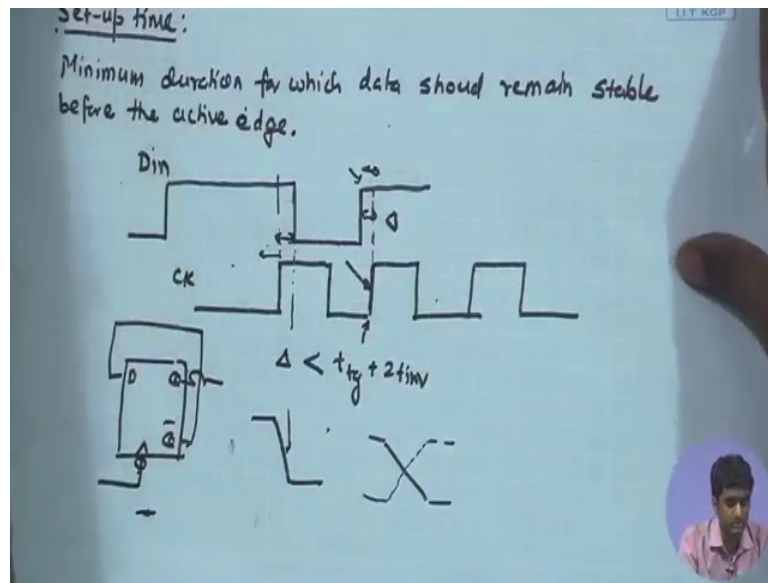 Set-up time:
IIT KGP
Minimum duration for which data shoud remain stable
before the active edge.
Din
Δ
CK
Δ < ttg + 2tinv
D Q
Q̅